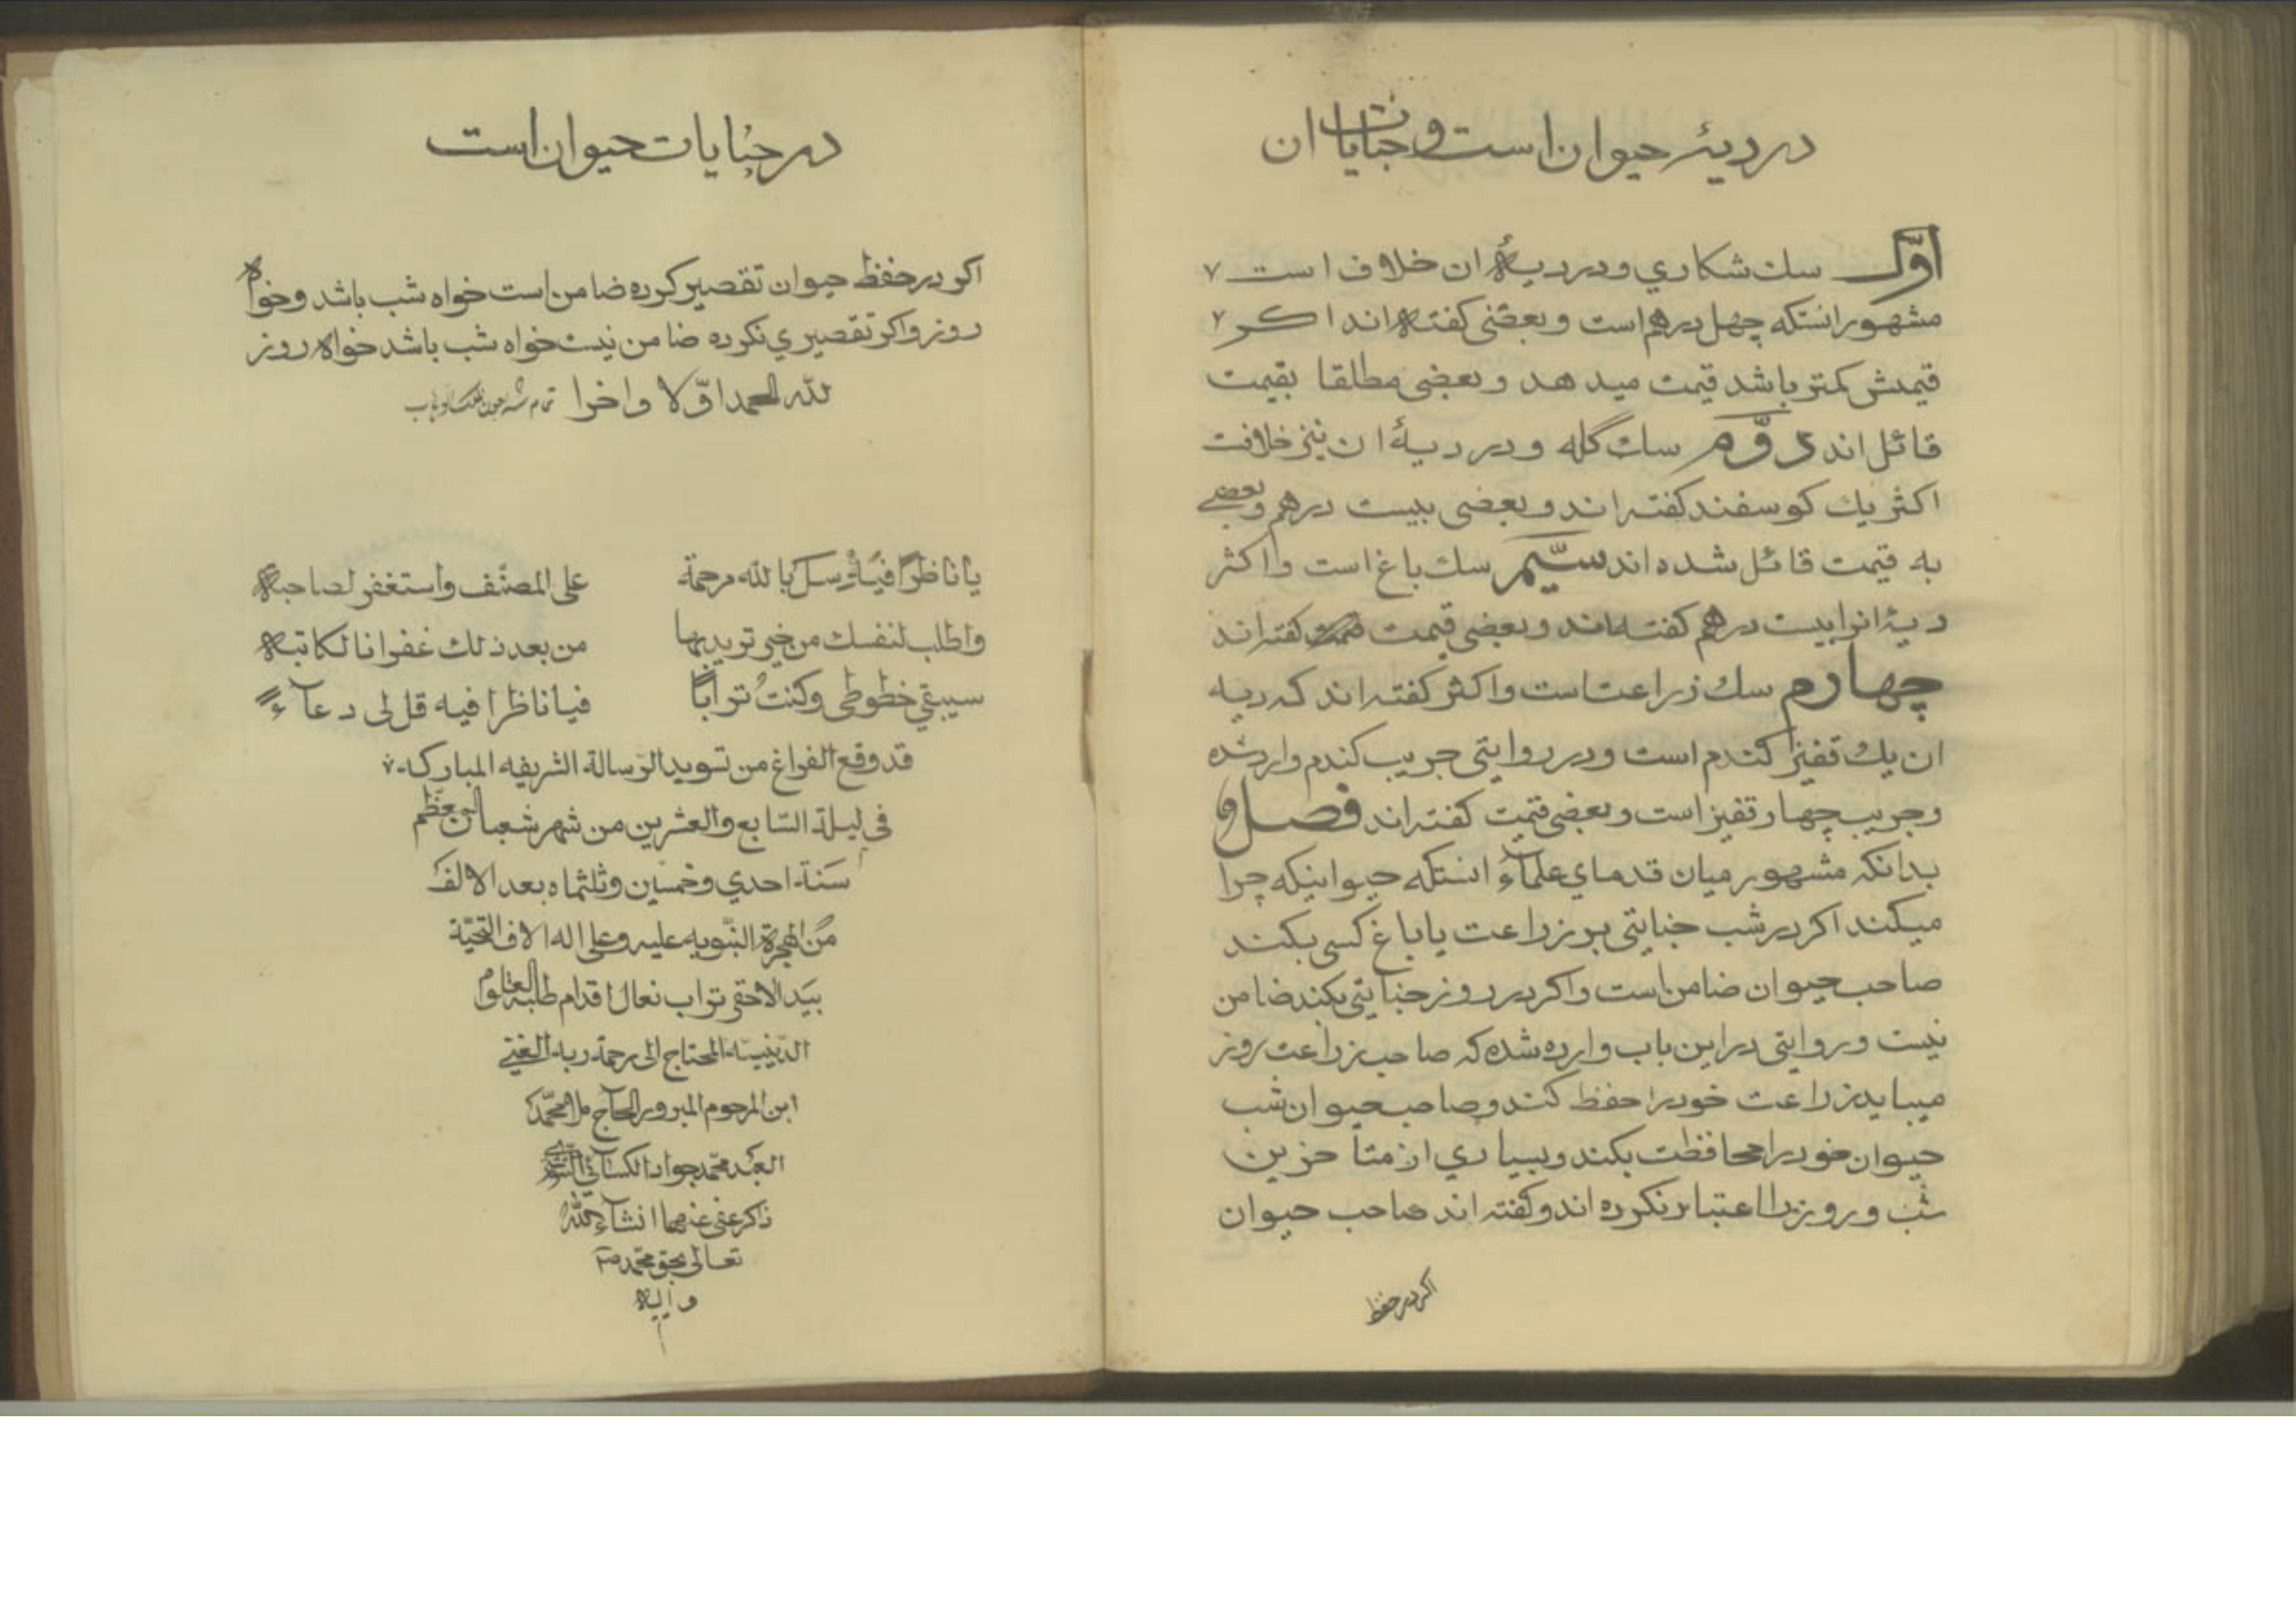 در دیهٔ حیوان است و جنایات ان
اوّل سك شكاري و در دیهٔ ان خلاف است
مشهور انستكه چهل درهم است و بعضی كفته‌اند اكر
قیمتش كمتر باشد قیمت میدهد و بعضی مطلقا بقیمت
قائل اند دوّم سك گله و در دیهٔ ان نیز خلافت
اكثر یك كوسفند كفته‌اند و بعضی بیست درهم و بعضی
به قیمت قائل شده اند سیّم سك باغ است و اكثر
دیهٔ انرا بیست درهم كفته‌اند و بعضی قیمت كفته‌اند
چهارم سك زراعت است و اكثر كفته‌اند كه دیه
ان یك قفیز كندم است و در روایتی جریب كندم وارد شده
و جریب چهار قفیز است و بعضی قیمت كفته‌اند فصل و
بدانكه مشهور میان قدماي علماء انستكه حیوانیكه چرا
میكند اكر در شب جنایتی بر زراعت یا باغ كسی بكند
صاحب حیوان ضامن است و اكر در روز جنایتی بكند ضامن
نیست و روایتی در این باب وارده شده كه صاحب زراعت روز
میباید زراعت خود را حفظ كند و صاحب حیوان شب
حیوان خود را محافظت بكند و بسیاري از متأخرین
شب و روز را اعتبار نكرده اند و كفته‌اند صاحب حیوان
اكر در حفظ
در جنایات حیوان است
اكر در حفظ حیوان تقصیر كرده ضامن است خواه شب باشد و خواه
روز و اكر تقصیري نكرده ضامن نیست خواه شب باشد خواه روز
لله الحمد اوّلا و اخرا تمام شد بعون الملك الوهاب
یا ناظرا فیه سل بالله مرحمة على المصنّف واستغفر لصاحبه
واطلب لنفسك من خیر تریدبها من بعد ذلك غفرانا لكاتبه
سیبقی خطوطی وكنت ترابا فیا ناظرا فیه قل لی دعآء
قد وقع الفراغ من تسوید الرّسالة الشریفه المباركه
فی لیلة السّابع والعشرین من شهر شعبان المعظّم
سنة احدي وخمسین وثلثماه بعد الالف
من الهجرة النّبویه علیه وعلی اله الاف التحیّة
بید الاحقر تراب نعال اقدام طلبة العلوم
الدّینیّة المحتاج الی رحمة ربه الغنی
ابن المرحوم المبرور الحاج ملا محمّد
العبد محمّد جواد الكسائی
ذاكر عفی عنهما انشآء الله
تعالی بحق محمّد ص
و الیه